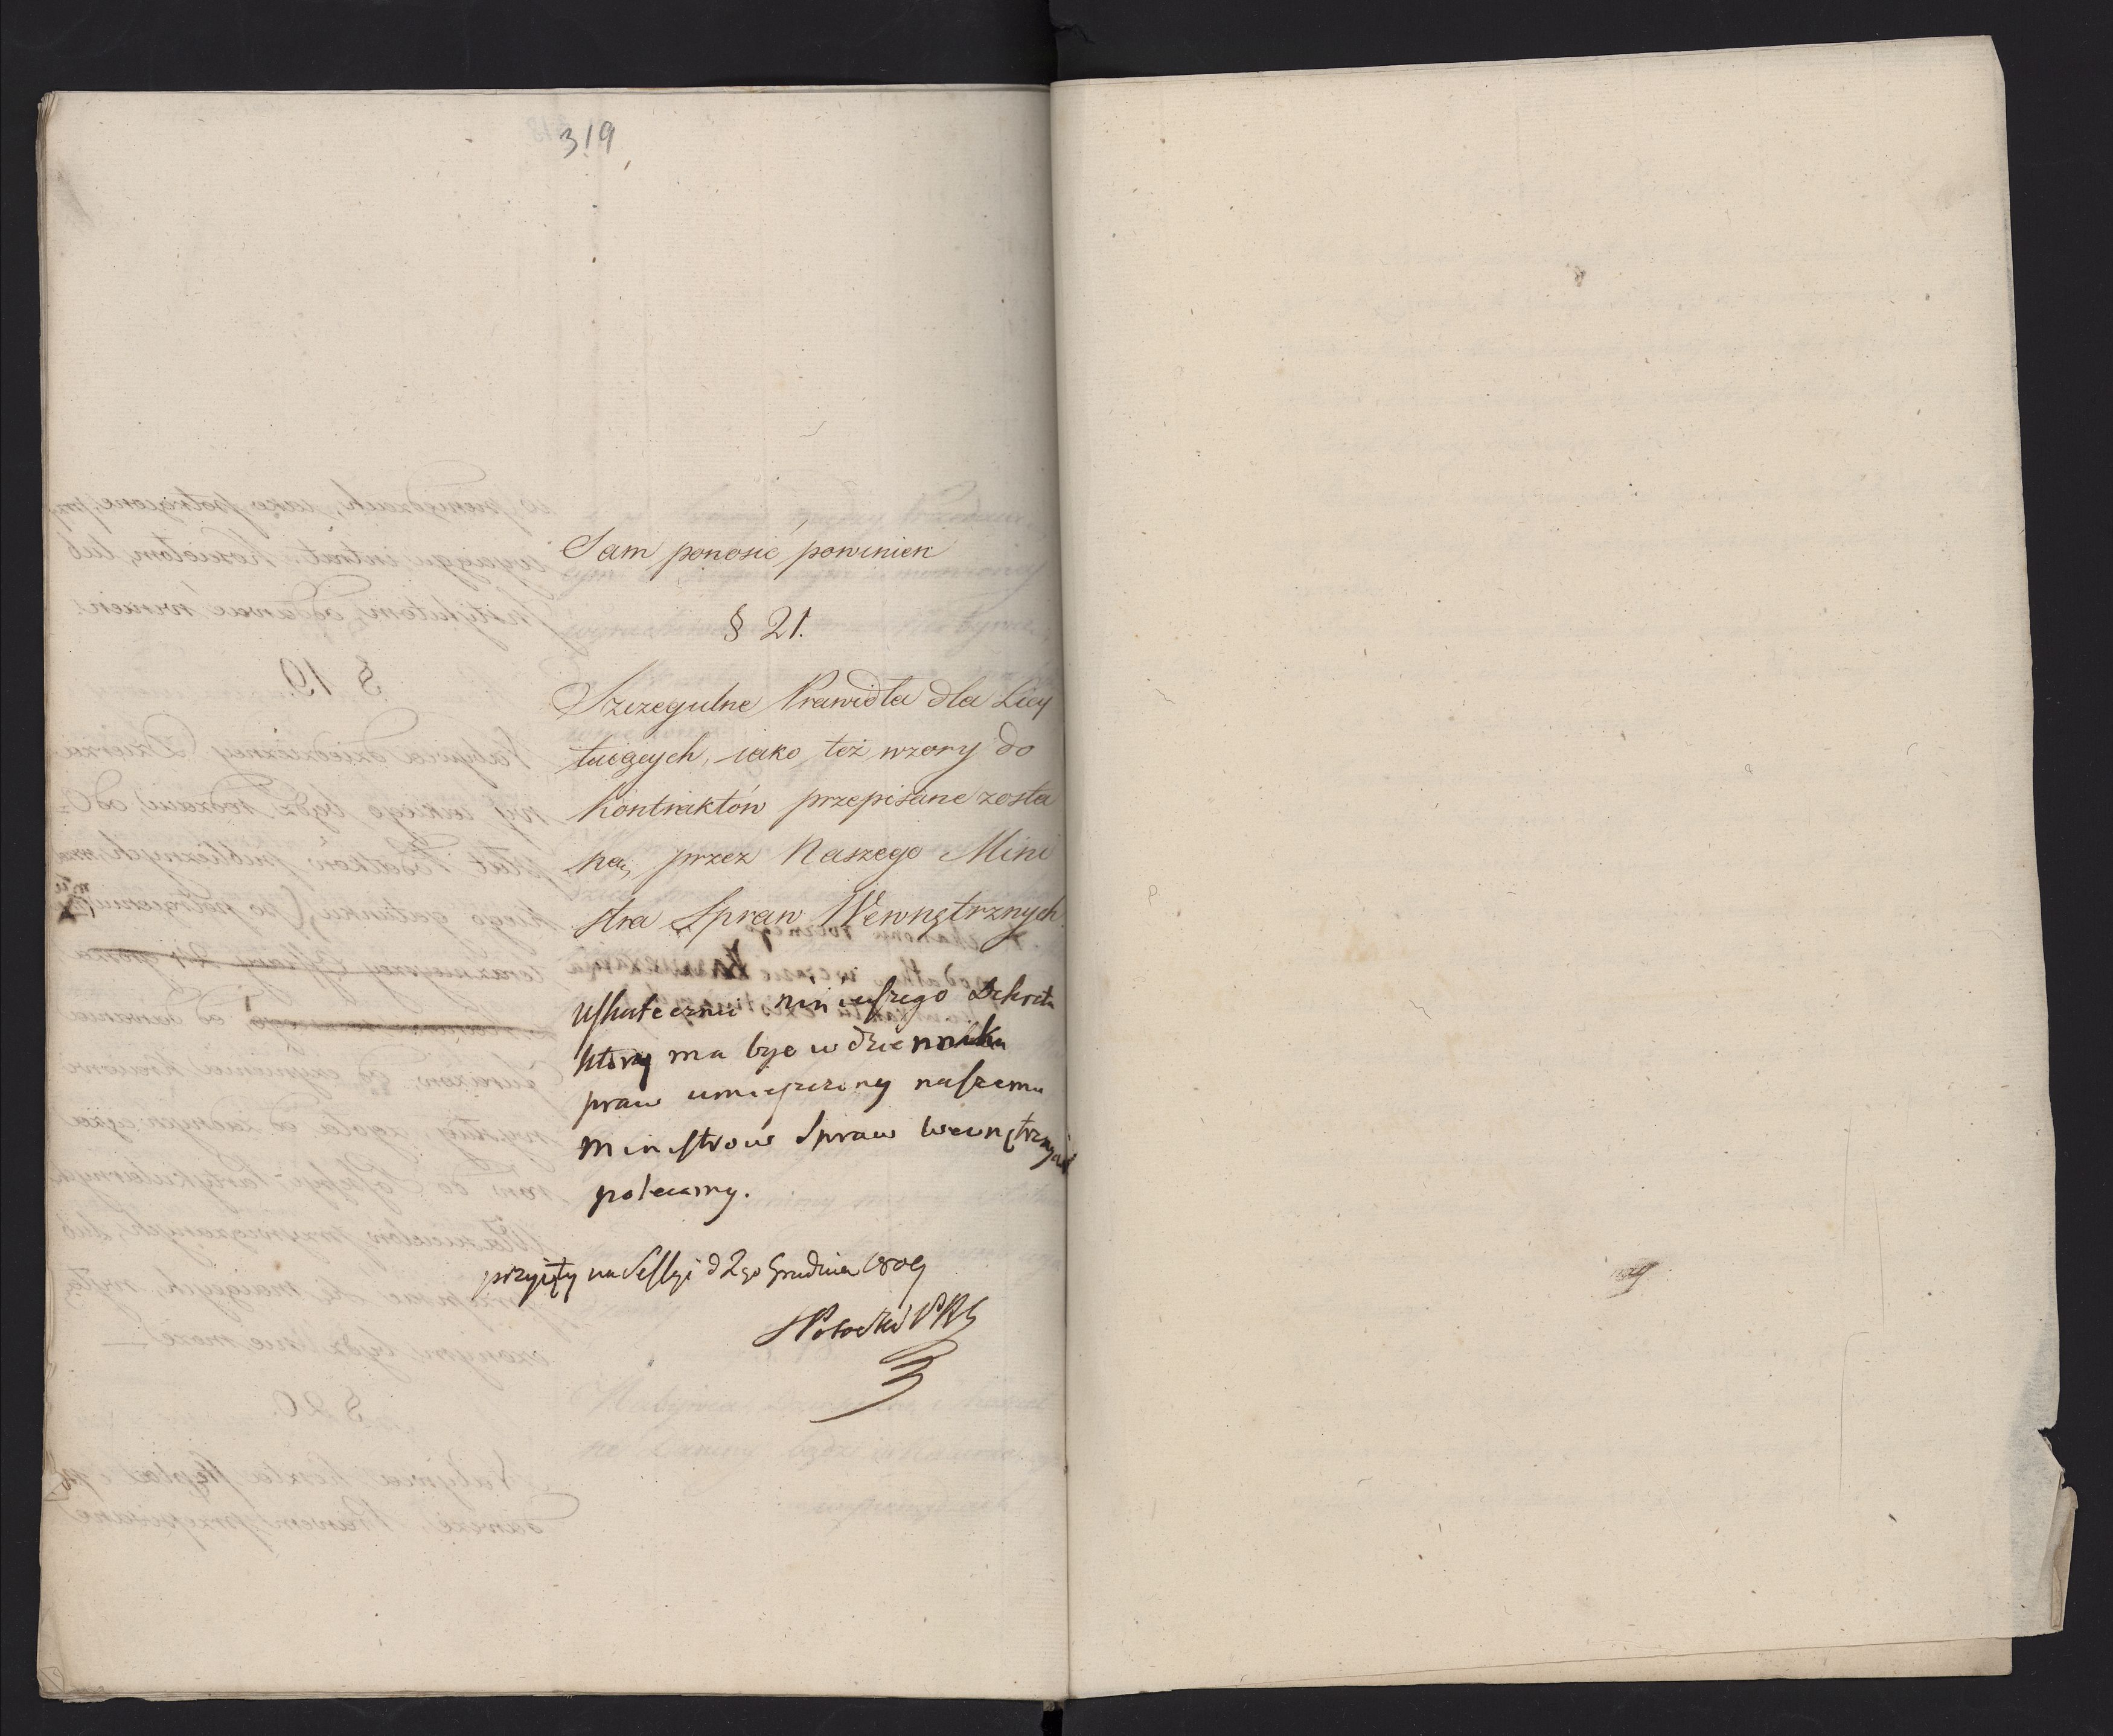 319
Sam ponosić powinien
§ 21.
Szczegulne Prawidła dla Licy
tuiących, iako też wzory do
Kontraktów przepisane zosta
ną, przez Naszego Mini
stra Spraw Wewnętrznych
Uskutecznie ninieyszego Dekretu
który ma być w dzienniku
praw umieszczony naszemu
Ministrowi Spraw Wewnętrznych
polecamy.
przyięty na Sessyi d 2go Grudnia 1809
Potocki